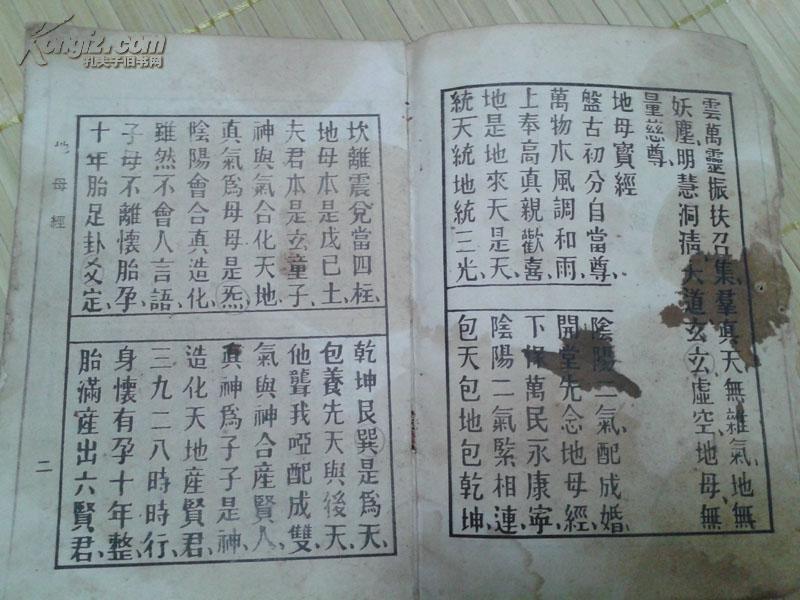 雲萬靈振扶召集羣真天無雜氣、地無
妖塵、明慧洞清、大道玄玄虛空、地母無
量慈尊
地母寶經
盤古初分自當尊、陰陽二氣配成婚、
萬物木風調和雨、開堂先念地母經、
上奉高真親歡喜、下保萬民永康寧、
地是地來天是天、陰陽二氣緊相連、
統天統地統三光、包天包地包乾坤、
坎離震兌當四柱、乾坤艮巽是爲天、
地母本是戊己土、包養先天與後天、
夫君本是玄童子、他聾我啞配成雙、
神與氣合化天地、氣與神合産賢人、
真氣爲母母是炁、真神爲子子是神、
陰陽會合真造化、造化天地産賢君、
雖然不會人言語、三九二八時時行、
子母不離懷胎孕、身懷有孕十年整、
十年胎足卦爻定、胎滿産出六賢君、
地母經
二
Kongfz.com
孔夫子旧书网